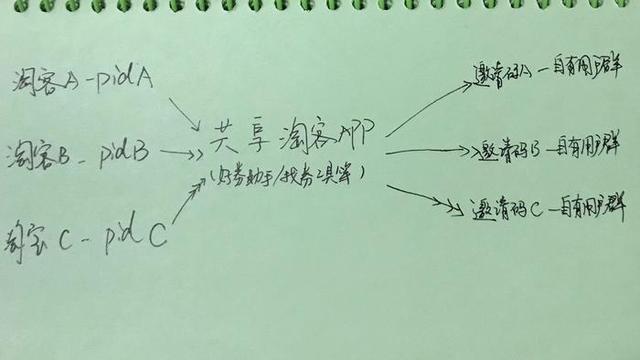 淘客A-pidA
淘客B-pidB
淘宝C-pidC
共享淘客APP
(好券助手/找券工具等)
邀请码A-自有用户群
邀请码B-自有用户群
邀请码C-自有用户群